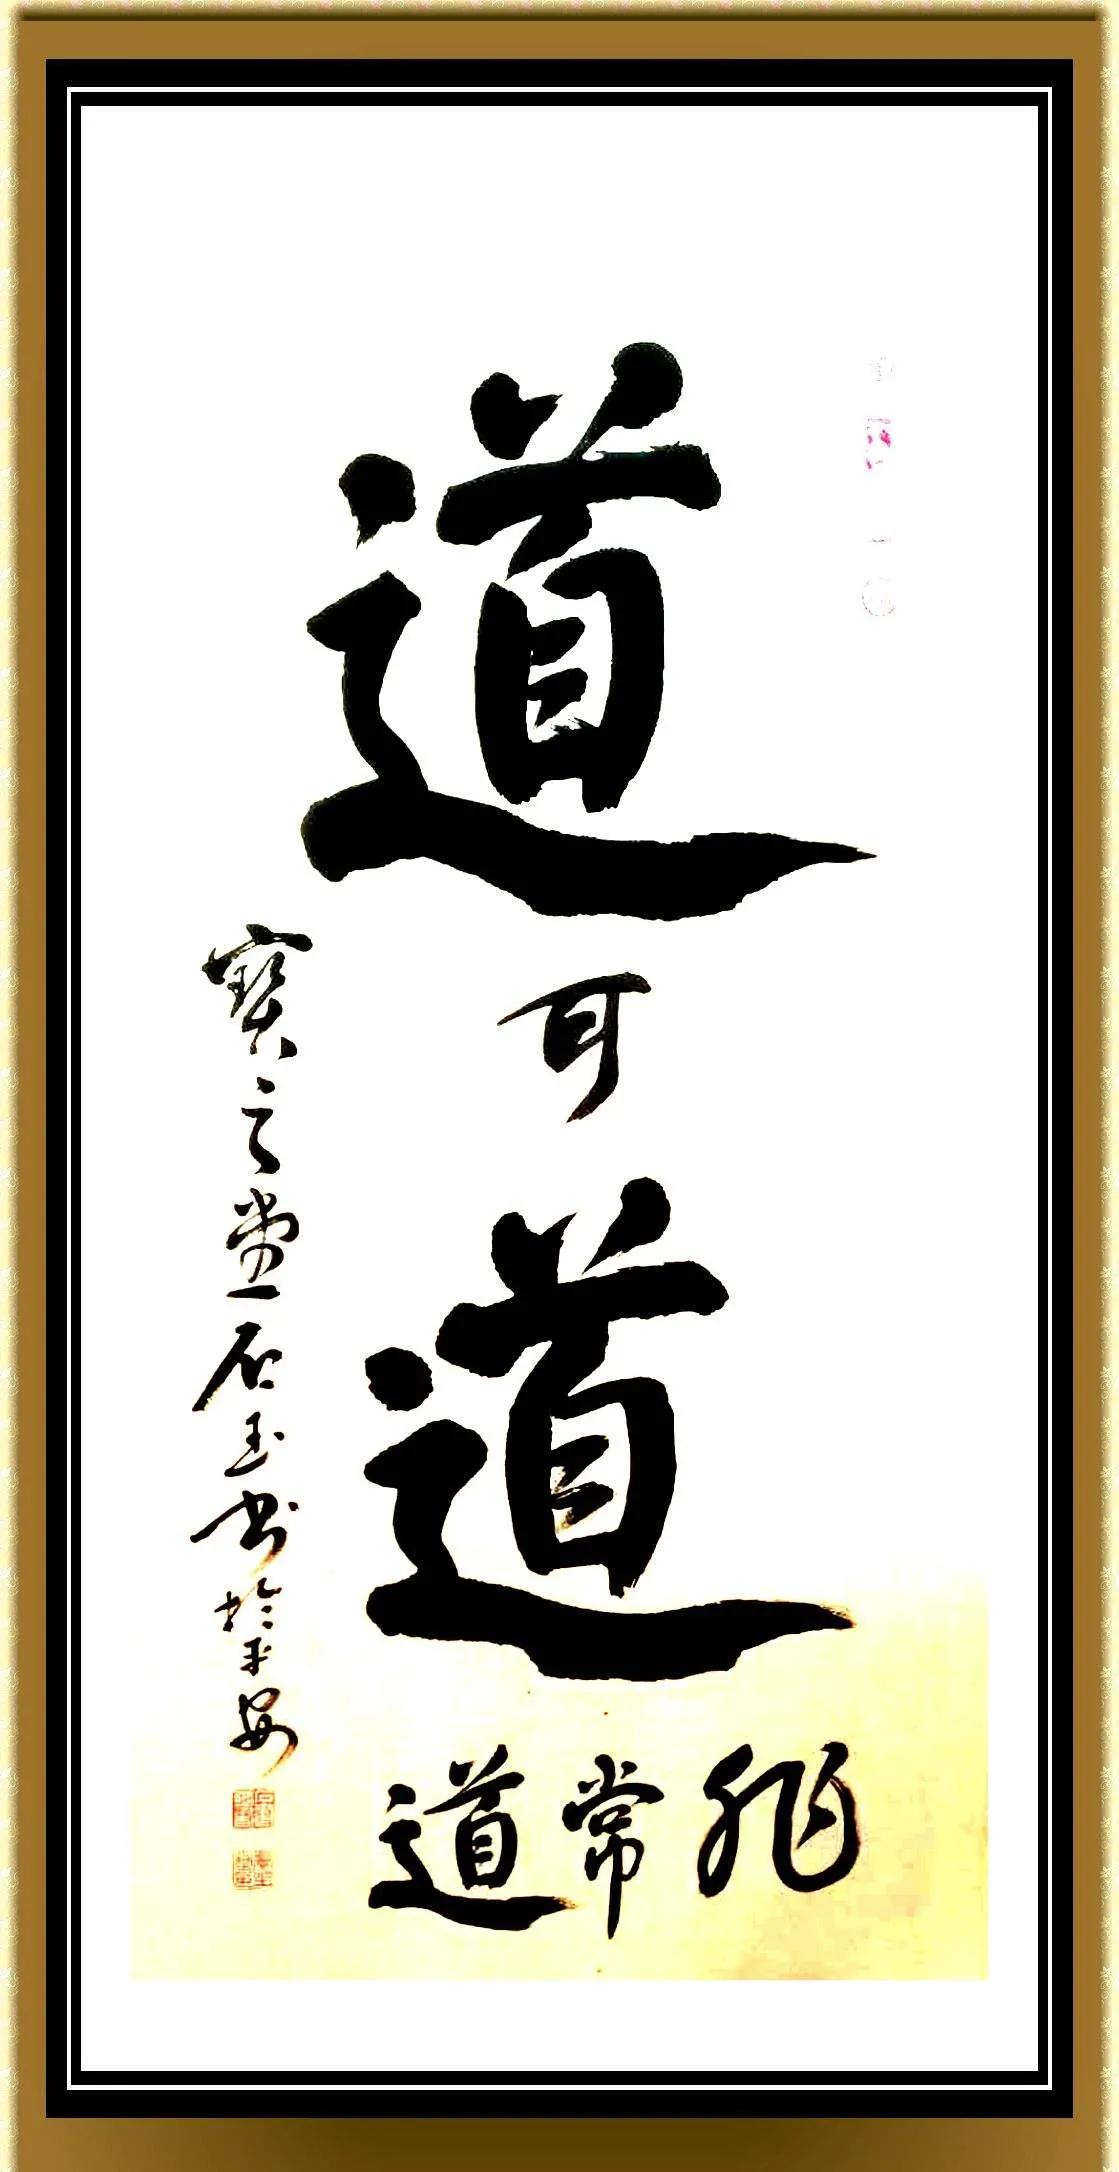 道
可
道
非常道
寶之堂石玉书於平安